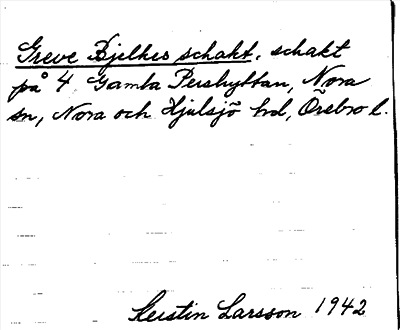 Greve Bjelkes schakt, schakt
på 4 Gamla Pershyttan, Nora
sn, Nora och Hjulsjö hd, Örebro l.
Kerstin Larsson 1942